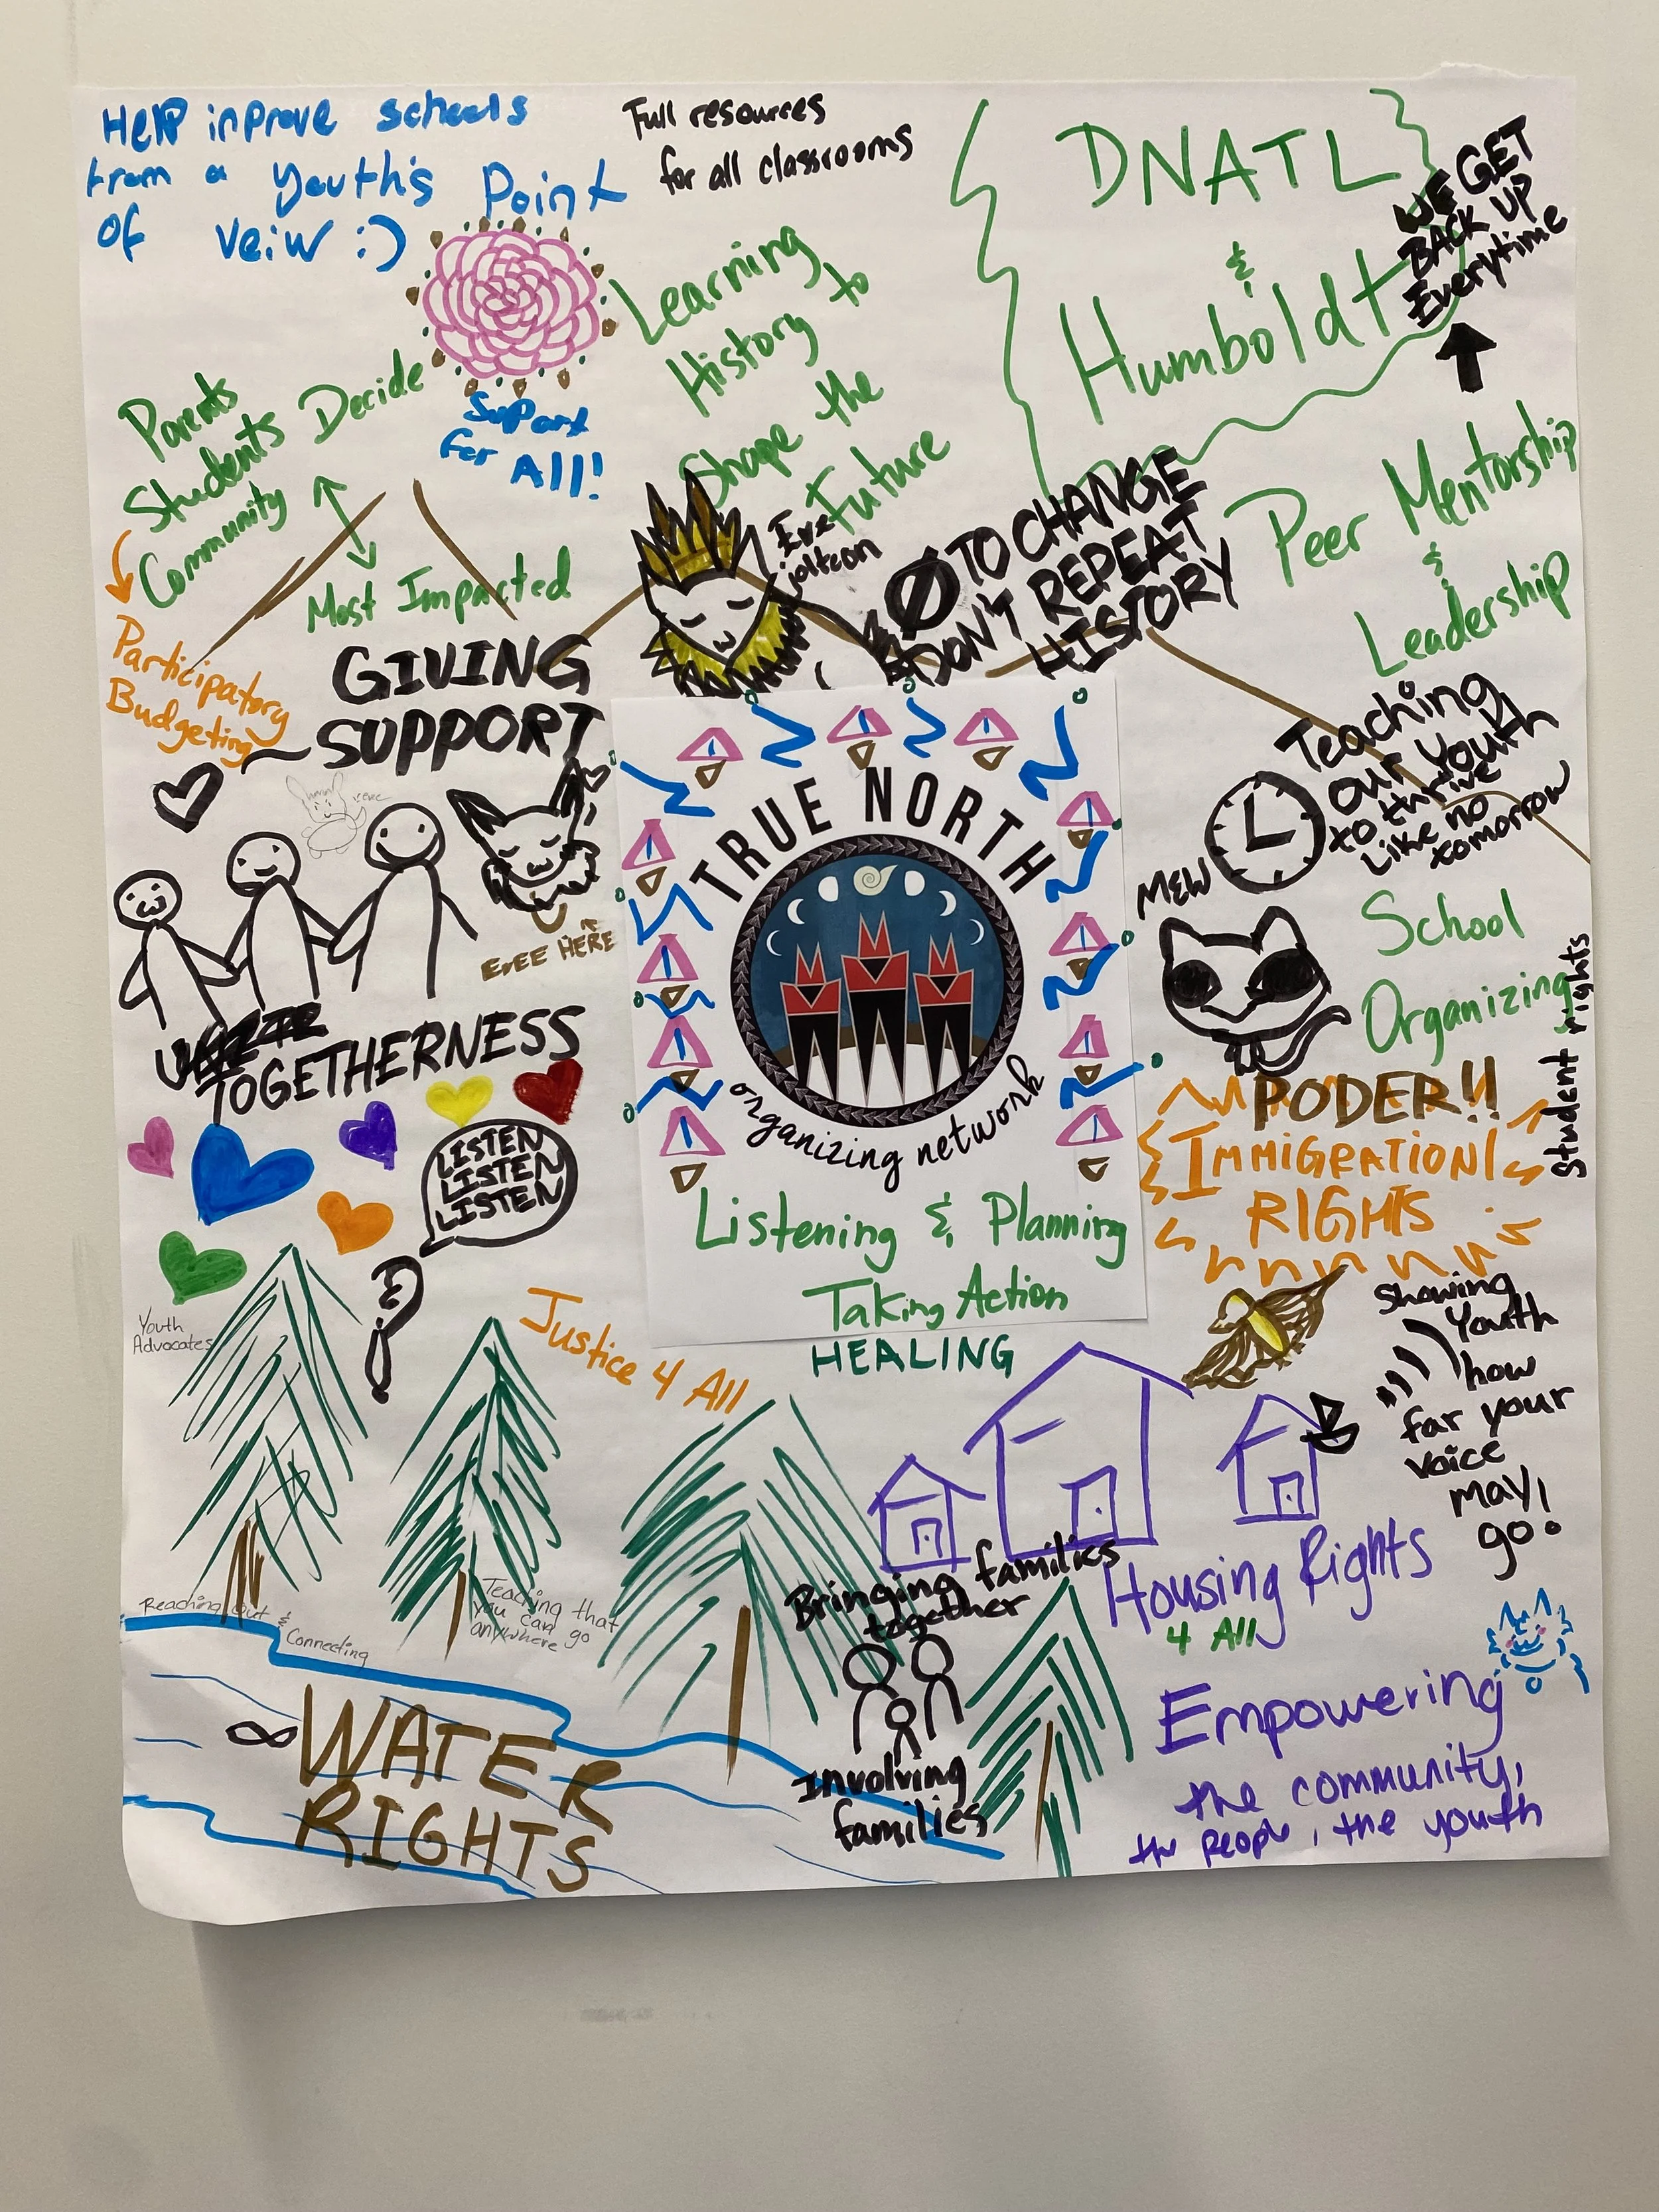 Help inprove schools
from a youth's Point
of veiw :)
Full resources
for all classrooms
DNATL
&
Humboldt
WE GET
BACK UP
Everytime
Learning
History to
Shape the
Future
Support
for All!
Parents
Students Decide
Community
Most Impacted
Participatory
Budgeting
Eve
jolteon
Ø TO CHANGE
DON'T REPEAT
HISTORY
Peer Mentorship
&
Leadership
GIVING
SUPPORT
Teaching
our youth
to thrive
like no
tomorrow
MEW
School
Organizing
Student rights
EVEE HERE
TOGETHERNESS
TRUE NORTH
organizing network
Listening & Planning
Taking Action
HEALING
LISTEN
LISTEN
LISTEN
PODER!!
IMMIGRATION
RIGHTS
Youth
Advocates
Justice 4 All
Showing
Youth
how
far your
voice
may
go!
Reaching Out &
Connecting
Teaching that
you can go
anywhere
Bringing families
together
Involving
families
Housing Rights
4 All
WATER
RIGHTS
Empowering
the community,
the people, the youth